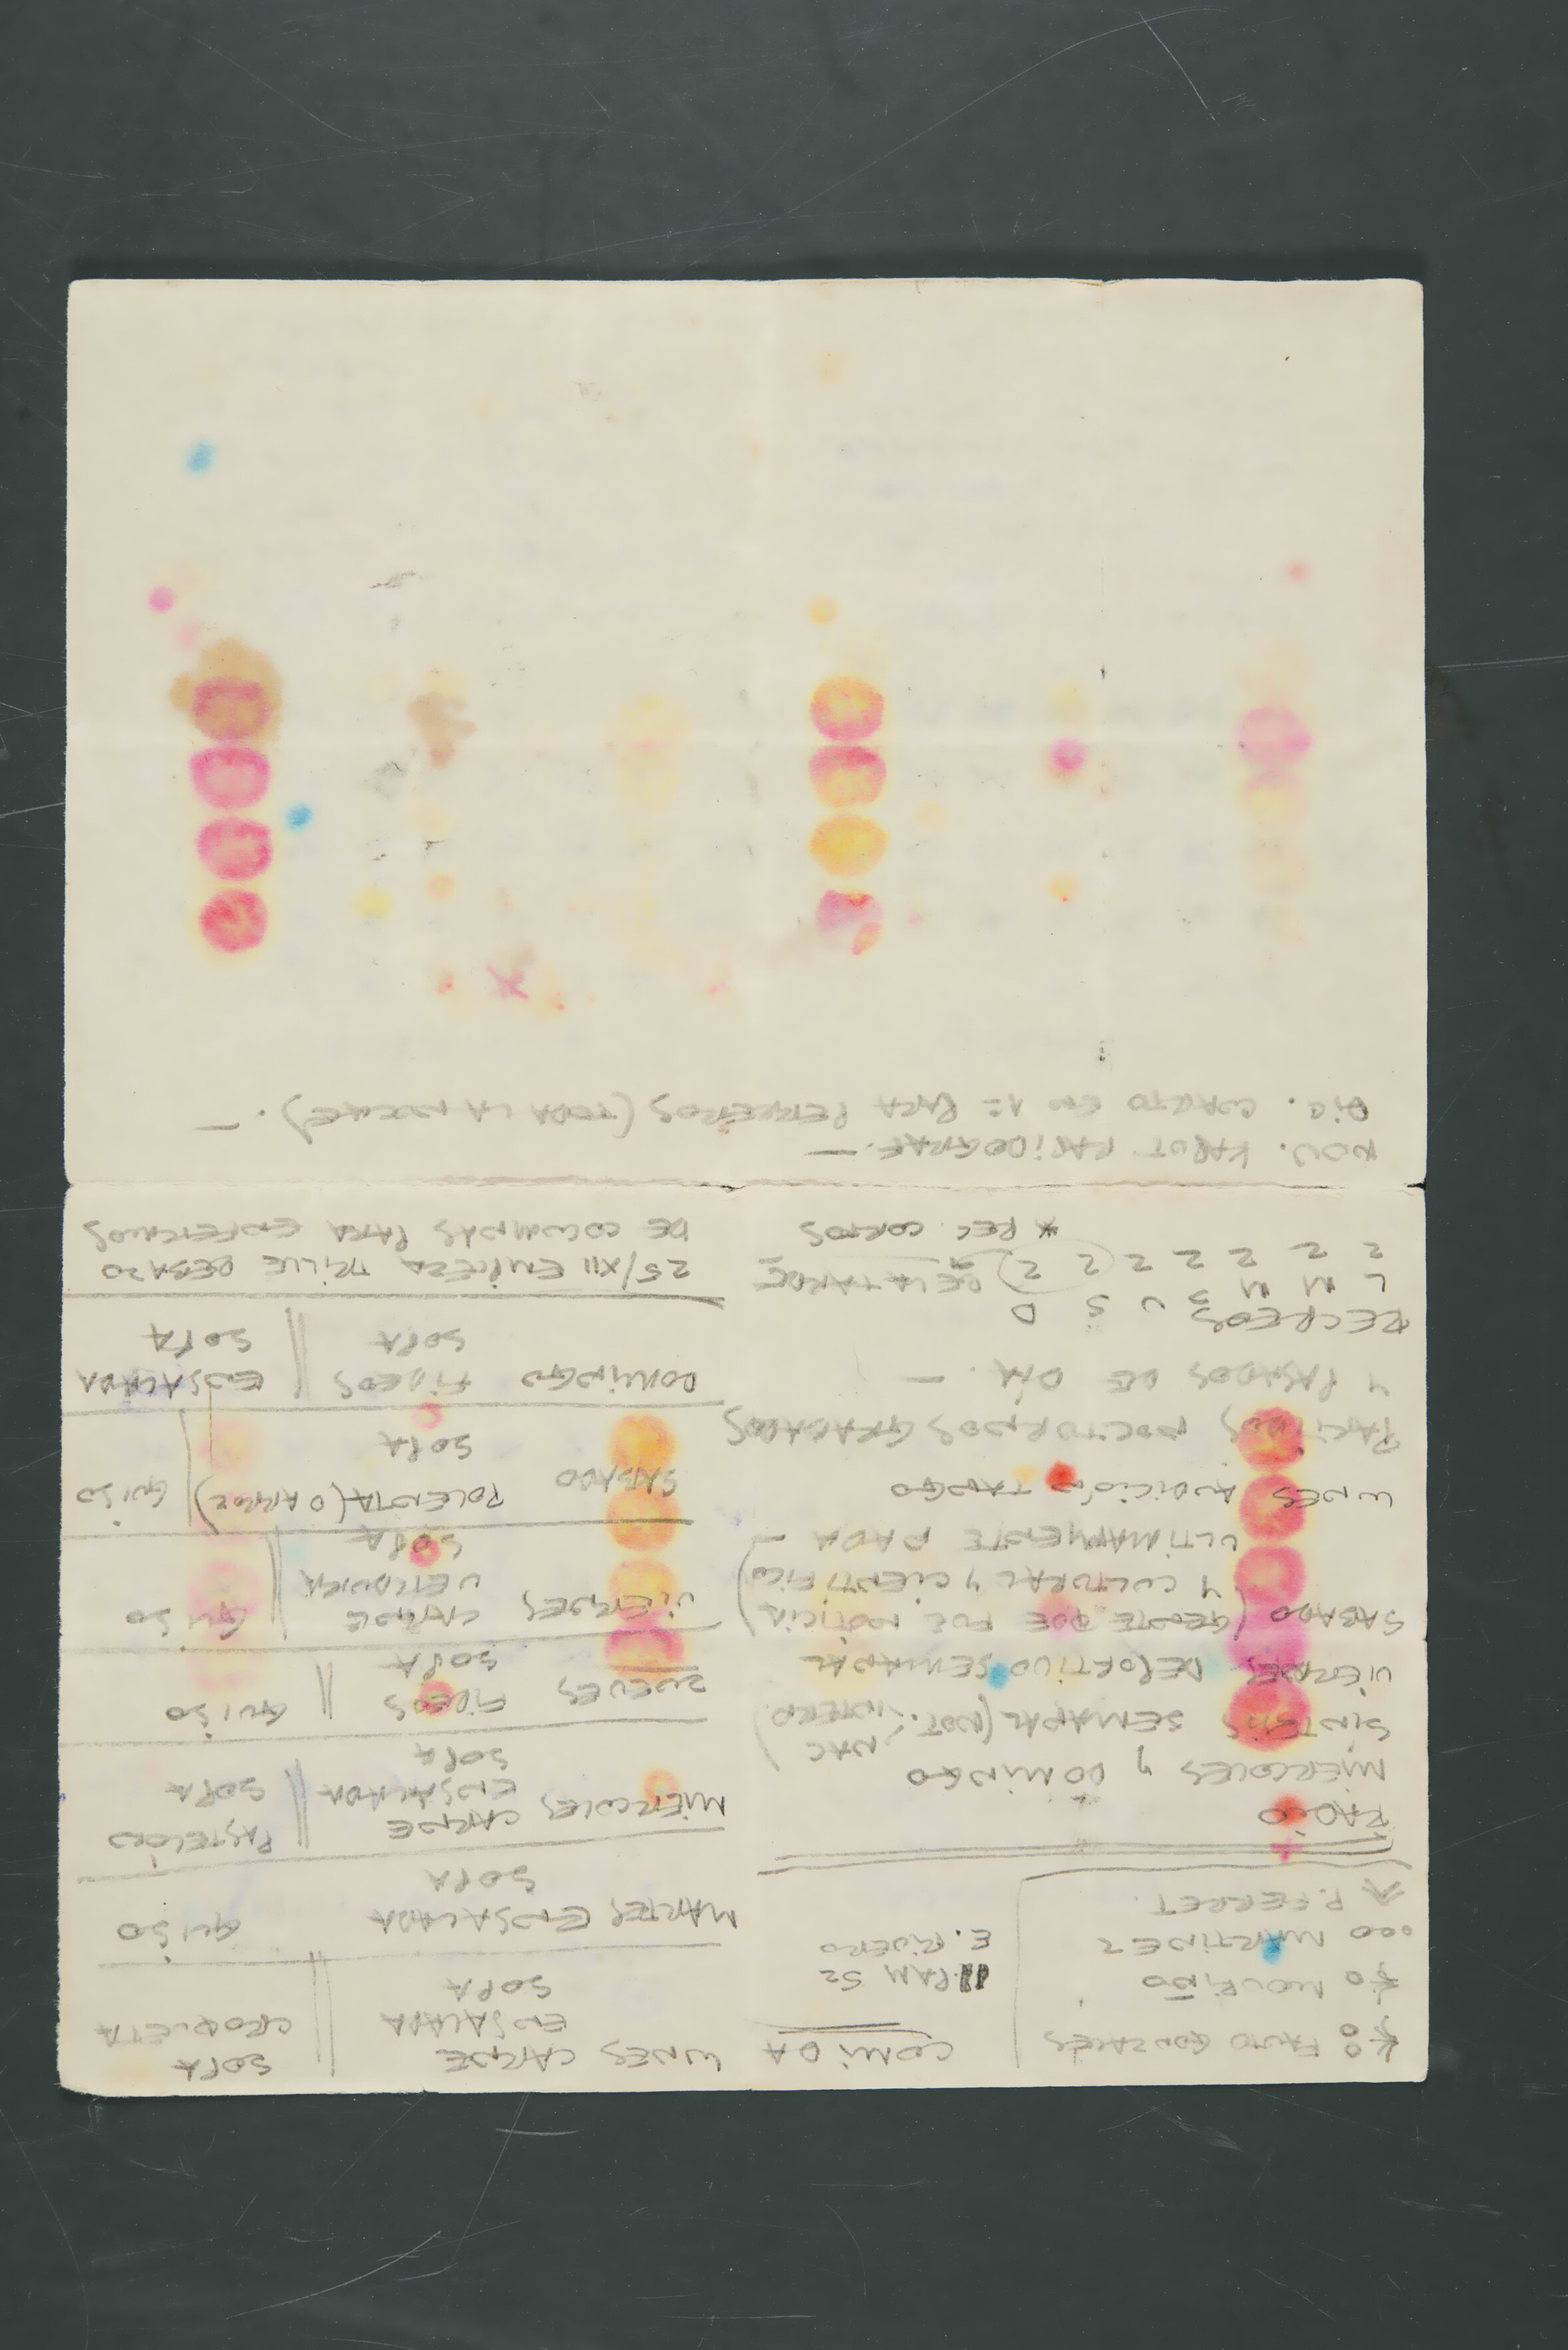 FAUTO GONZALES
MOURIÑO
MARTINEZ
P. FERRET.
COMIDA
11. PAM 52
E. RIVERO
RADIO
MIERCOLES Y DOMINGO
SINTESIS SEMANAL (NOT. NAC
INTERN)
VIERNES DEPORTIVO SEMANAL
SABADO (GENTE QUE FUE NOTICIA
Y CULTURAL Y CIENTIFICO)
ULTIMAMENTE NADA —
LUNES AUDICIÓN TANGO
PARTIDOS NOCTURNOS GRABADOS
Y PASADOS DE DIA. —
RECREOS
L M M J V S D
2 2 2 2 2 (2 2) DE LA TARDE
* REC. CORTOS
LUNES CARNE
ENSALADA
SOPA
SOPA
CROQUETA
MARTES ENSALADA
SOPA
GUISO
MIERCOLES CARNE
ENSALADA
SOPA
PASTELON
SOPA
JUEVES FIDEOS
SOPA
GUISO
VIERNES CARNE
VERDURA
SOPA
GUISO
SABADO POLENTA (O ARROZ)
SOPA
GUISO
DOMINGO FIDEOS
SOPA
ENSALADA
SOPA
25/XII EMPIEZA TRILLE PESADO
DE COLUMNAS PARA ENFERMOS
NOV. KAPUT RAPIDOGRAF. —
DIC. CUARTO EN 1= PARA PERREROS (TODA LA NOCHE). —